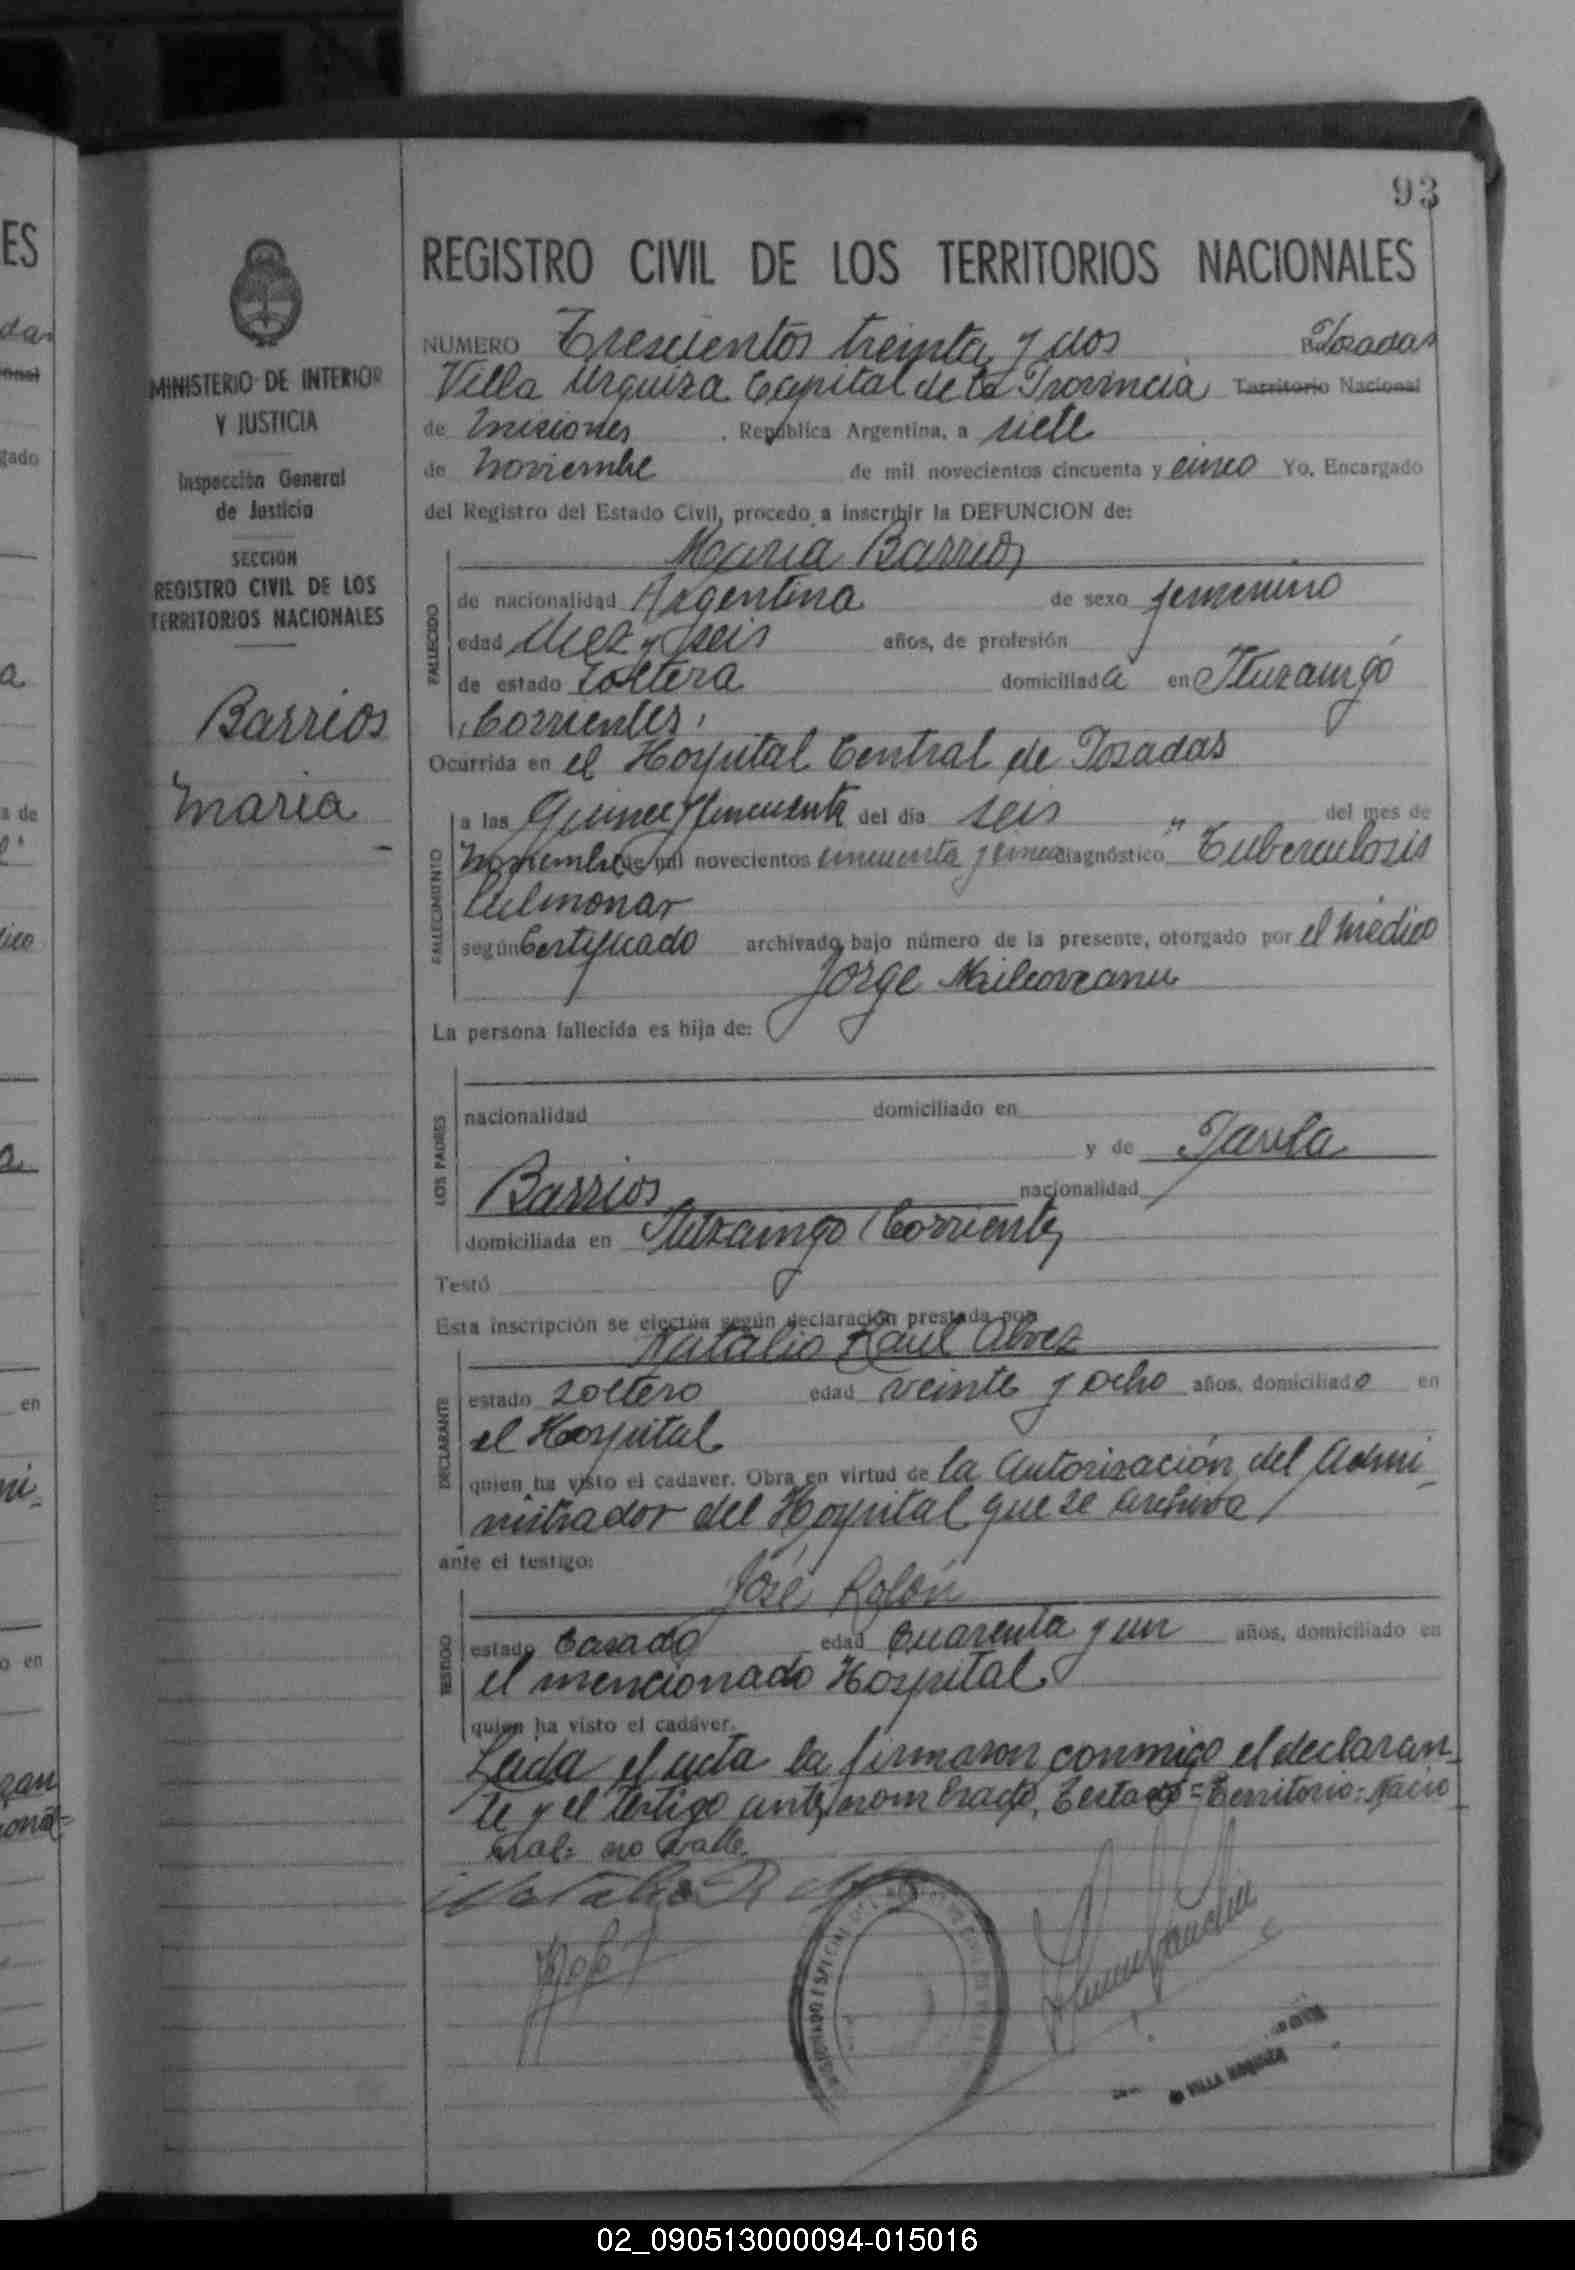 93
REGISTRO CIVIL DE LOS TERRITORIOS NACIONALES
MINISTERIO DE INTERIOR
Y JUSTICIA
Inspección General
de Justicia
SECCION
REGISTRO CIVIL DE LOS
TERRITORIOS NACIONALES
Barrios
Maria
NUMERO Trescientos treinta y dos Posadas
Villa Urquiza Capital de la Provincia Territorio Nacional
de Misiones, República Argentina, a siete
de Noviembre de mil novecientos cincuenta y cinco Yo, Encargado
del Registro del Estado Civil, procedo a inscribir la DEFUNCION de:
Maria Barrios
FALLECIDO
de nacionalidad Argentina de sexo femenino
edad diez y seis años, de profesión
de estado soltera domiciliada en Ituzaingó
(Corrientes)
Ocurrida en el Hospital Central de Posadas
FALLECIMIENTO
a las Quince y cincuenta del día seis del mes de
Noviembre de mil novecientos cincuenta y cinco diagnóstico "Tuberculosis
Pulmonar
según Certificado archivado bajo número de la presente, otorgado por el médico
Jorge Milcoveanu
La persona fallecida es hija de:
LOS PADRES
nacionalidad domiciliado en
y de Paula
Barrios nacionalidad
domiciliada en Ituzaingo (Corrientes
Testó
Esta inscripción se efectúa según declaración prestada por
Natalio Raul Alvez
DECLARANTE
estado soltero edad veinte y ocho años, domiciliado en
el Hospital
quien ha visto el cadaver. Obra en virtud de la Autorización del Admi-
nistrador del Hospital que se archiva
ante el testigo:
José Rolón
TESTIGO
estado Casado edad Cuarenta y un años, domiciliado en
el mencionado Hospital
quien ha visto el cadáver.
Leida el acta la firmaron conmigo el declaran-
te y el testigo antes nombrado, Testado = Territorio: Nacio
nal: no valle.
Natalio R
VILLA URQUIZA
02_090513000094-015016